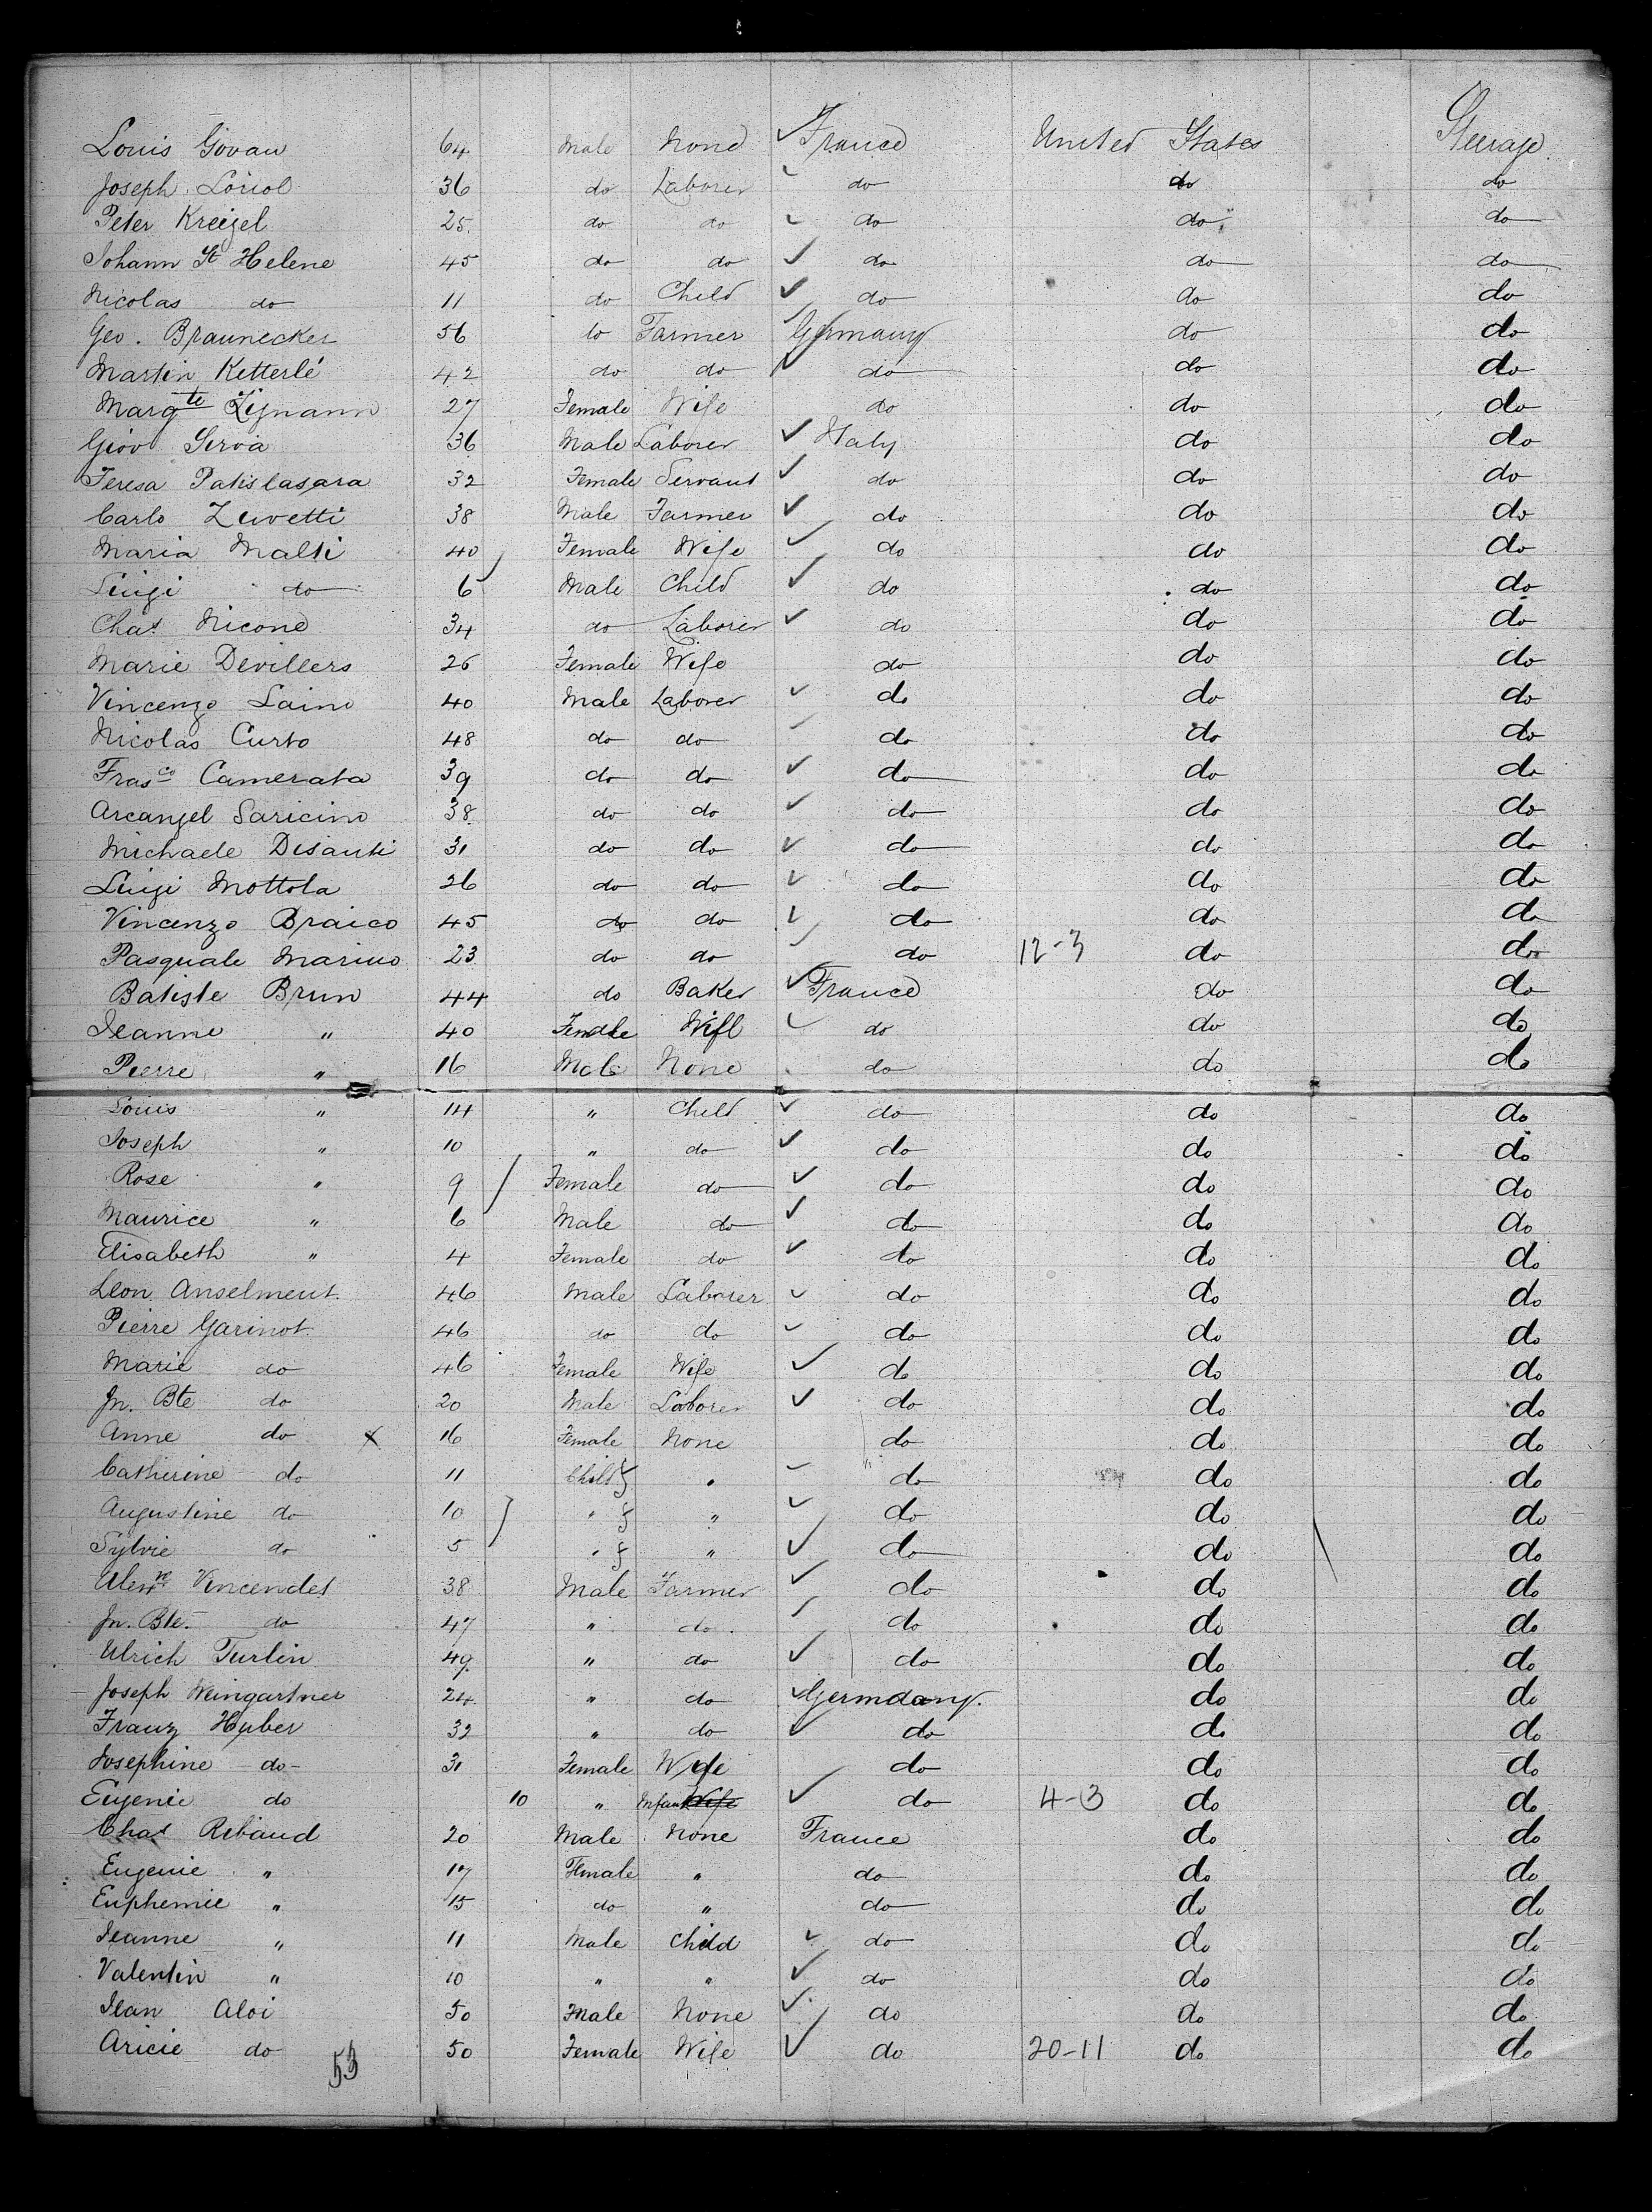 Louis Govau 64 Male None ✓ France United States Steerage
Joseph Loriol 36 do Laborer ✓ do do do
Peter Kreigel 25 do do ✓ do do do
Johann St Helene 45 do do ✓ do do do
Nicolas do 11 do Child ✓ do do do
Geo. Braunecker 56 do Farmer ✓ Germany do do
Martin Ketterlé 42 do do ✓ do do do
Margte 27 Female Wife do do do
Giov Serva 36 Male Laborer ✓ Italy do do
Teresa Patislasara 32 Female Servant ✓ do do do
Carlo Zuvetti 38 Male Farmer ✓ do do do
Maria Malti 40 Female Wife ✓ do do do
Luigi do 6 Male Child ✓ do do do
Chas Nicone 34 do Laborer ✓ do do do
Marie Devillers 26 Female Wife do do do
Vincenzo Laino 40 Male Laborer ✓ do do do
Nicolas Curto 48 do do ✓ do do do
Frasco Camerata 39 do do ✓ do do do
Arcangel Saricino 38 do do ✓ do do do
Michaele Disanti 31 do do ✓ do do do
Luigi Mottola 26 do do ✓ do do do
Vincenzo Braico 45 do do ✓ do do do
Pasquale Marino 23 do do ✓ do 12-3 do do
Batiste Brun 44 do Baker ✓ France do do
Jeanne " 40 Female Wife ✓ do do do
Pierre " 16 Male None do do do
Louis " 14 " Child ✓ do do do
Joseph " 10 " do ✓ do do do
Rose " 9 Female do ✓ do do do
Maurice " 6 Male do ✓ do do do
Elisabeth " 4 Female do ✓ do do do
Leon Anselment 46 Male Laborer ✓ do do do
Pierre Garinot 46 do do ✓ do do do
Marie do 46 Female Wife ✓ do do do
Jn. Bte do 20 Male Laborer ✓ do do do
Anne do x 16 Female None do do do
Catherine do 11 Child f " ✓ do do do
Augustine do 10 " f " ✓ do do do
Sylvie do 5 " f " ✓ do do do
Alexre Vincendet 38 Male Farmer ✓ do do do
Jn. Bte. do 47 " do ✓ do do do
Ulrich Turlin 49 " do ✓ do do do
Joseph Weingartner 24 " do ✓ Germany do do
Franz Huber 32 " do ✓ do do do
Josephine do 31 Female Wife do do do
Eugenie do 10 " Infant Wife ✓ do 4-3 do do
Chas Ribaud 20 Male None France do do
Eugenie " 17 Female " do do do
Euphemie " 15 do " do do do
Jeanne " 11 Male Child ✓ do do do
Valentin " 10 " " ✓ do do do
Jean Aloi 50 Male None ✓ do do do
Aricie do 50 Female Wife ✓ do 20-11 do do
53